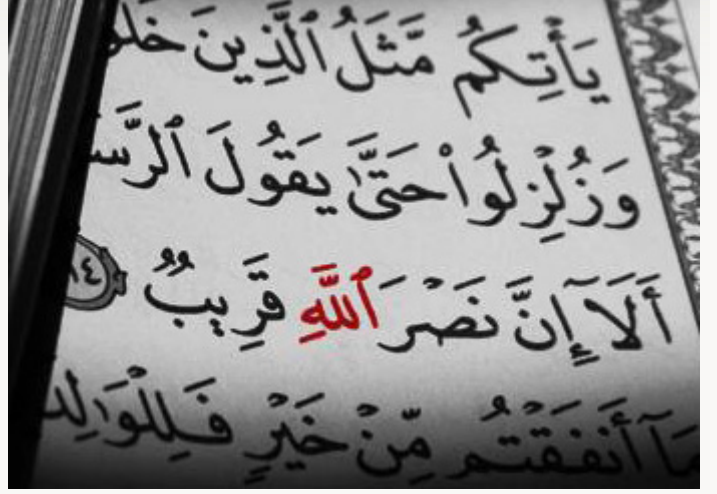 يَأْتِكُم مَّثَلُ ٱلَّذِينَ خَلَوْ
وَزُلْزِلُوا۟ حَتَّىٰ يَقُولَ ٱلرَّسُ
أَلَآ إِنَّ نَصْرَ ٱللَّهِ قَرِيبٌ
مَآ أَنفَقْتُم مِّنْ خَيْرٍ فَلِلْوَٰلِدَ